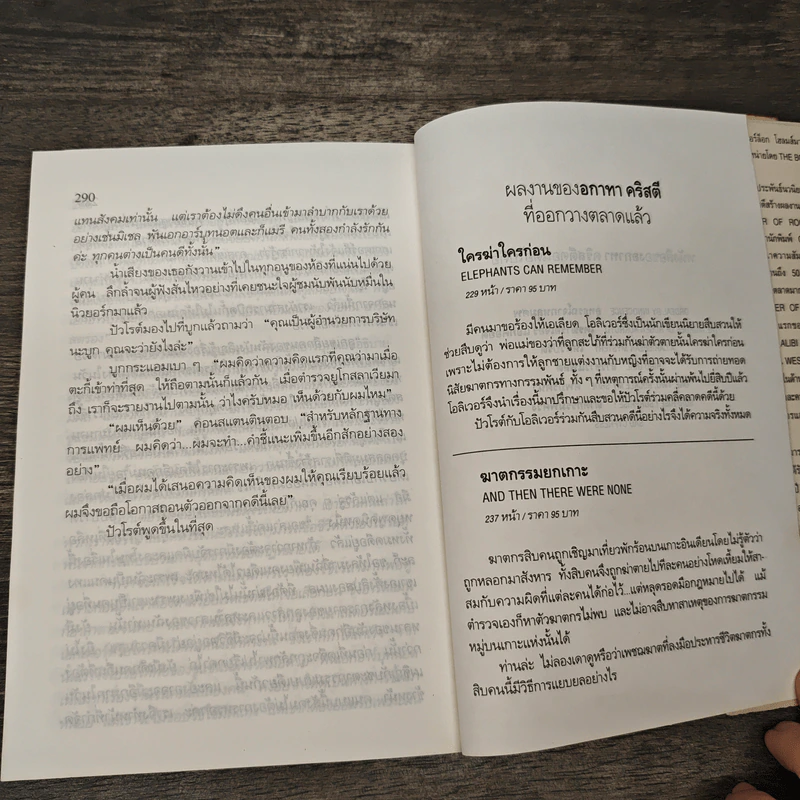 290
แทนสังคมเท่านั้น แต่เราต้องไม่ดึงคนอื่นเข้ามาลำบากกับเราด้วย
อย่างเช่นมิเชล พันเอกอาร์บุทนอตและก็แมรี คนทั้งสองกำลังรักกัน
ค่ะ ทุกคนต่างเป็นคนดีทั้งนั้น”
น้ำเสียงของเธอกังวานเข้าไปในทุกอนูของห้องที่แน่นไปด้วย
ผู้คน ลึกล้ำจนผู้ฟังสั่นไหวอย่างที่เคยชนะใจผู้ชมนับพันนับหมื่นใน
นิวยอร์กมาแล้ว
ปัวโรต์มองไปที่บูกแล้วถามว่า “คุณเป็นผู้อำนวยการบริษัท
นะบูก คุณจะว่ายังไงล่ะ”
บูกกระแอมเบา ๆ “ผมคิดว่าความคิดแรกที่คุณว่ามาเมื่อ
ตะกี้เข้าท่าที่สุด ให้ถือตามนั้นก็แล้วกัน เมื่อตำรวจยูโกสลาเวียมา
ถึง เราก็จะรายงานไปตามนั้น ว่าไงครับหมอ เห็นด้วยกับผมไหม”
“ผมเห็นด้วย” ค่อนสแตนตินตอบ “สำหรับหลักฐานทาง
การแพทย์ ผมคิดว่า...ผมจะทำ...คำชี้แนะเพิ่มขึ้นอีกสักอย่างสอง
อย่าง”
“เมื่อผมได้เสนอความคิดเห็นของผมให้คุณเรียบร้อยแล้ว
ผมจึงขอถือโอกาสถอนตัวออกจากคดีนี้เลย”
ปัวโรต์พูดขึ้นในที่สุด
ผลงานของอกาทา คริสตี
ที่ออกวางตลาดแล้ว
ใครฆ่าใครก่อน
ELEPHANTS CAN REMEMBER
229 หน้า / ราคา 95 บาท
มีคนมาขอร้องให้เอเลียด โอลิเวอร์ซึ่งเป็นนักเขียนนิยายสืบสวนให้
ช่วยสืบดูว่า พ่อแม่ของว่าที่ลูกสะใภ้ที่ร่วมกันฆ่าตัวตายนั้นใครฆ่าใครก่อน
เพราะไม่ต้องการให้ลูกชายแต่งงานกับหญิงที่อาจจะได้รับการถ่ายทอด
นิสัยฆาตกรทางกรรมพันธุ์ ทั้ง ๆ ที่เหตุการณ์ครั้งนั้นผ่านพ้นไปยี่สิบปีแล้ว
โอลิเวอร์จึงนำเรื่องนี้มาปรึกษาและขอให้ปัวโรต์ร่วมคลี่คลาดคดีนี้ด้วย
ปัวโรต์กับโอลิเวอร์ร่วมกันสืบสวนคดีนี้อย่างไรจึงได้ความจริงทั้งหมด
ฆาตกรรมยกเกาะ
AND THEN THERE WERE NONE
237 หน้า / ราคา 95 บาท
ฆาตกรสิบคนถูกเชิญมาเที่ยวพักร้อนบนเกาะอินเดียนโดยไม่รู้ตัวว่า
ถูกหลอกมาสังหาร ทั้งสิบคนจึงถูกฆ่าตายไปทีละคนอย่างโหดเหี้ยมให้สา-
สมกับความผิดที่แต่ละคนได้ก่อไว้...แต่หลุดรอดมือกฎหมายไปได้ แม้
ตำรวจเองก็หาตัวฆาตกรไม่พบ และไม่อาจสืบหาสาเหตุของการฆาตกรรม
หมู่บนเกาะแห่งนั้นได้
ท่านล่ะ ไม่ลองเดาดูหรือว่าเพชฌฆาตที่ลงมือประหารชีวิตฆาตกรทั้ง
สิบคนนี้มีวิธีการแยบยลอย่างไร